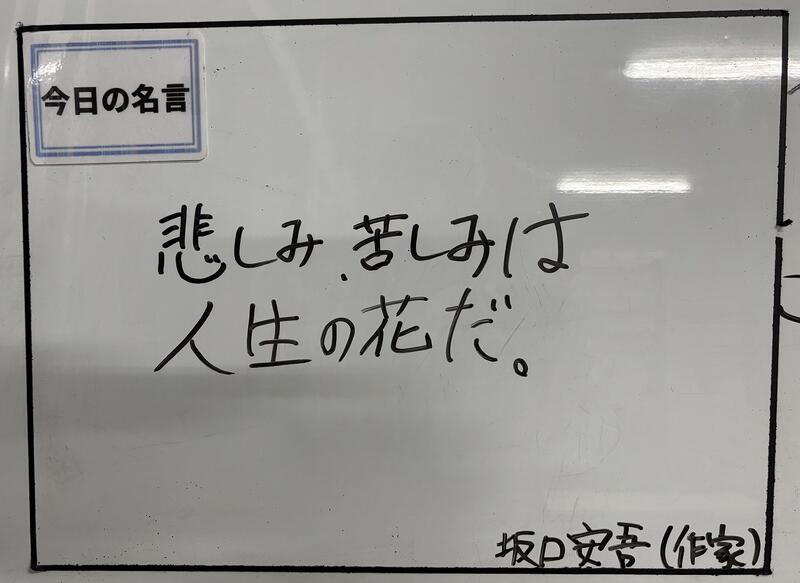 今日の名言
悲しみ、苦しみは
人生の花だ。
坂口安吾(作家)